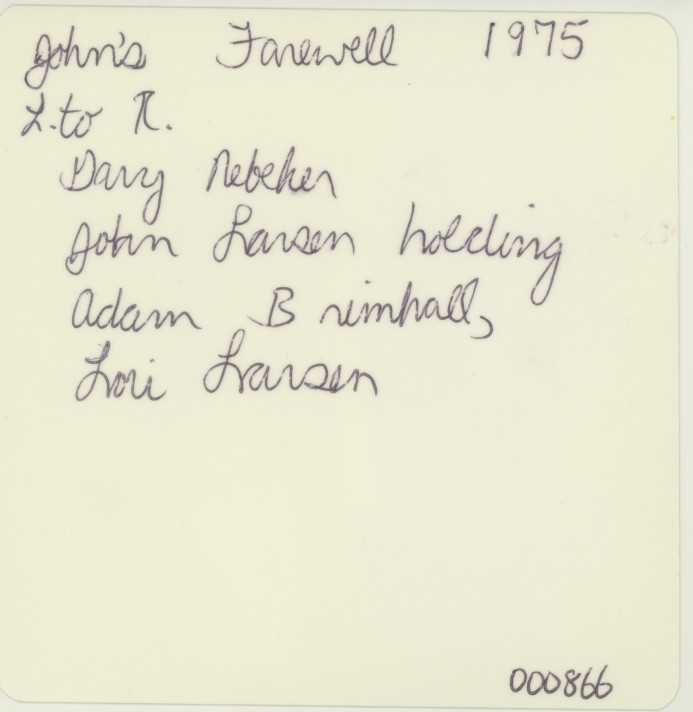 John's Farewell 1975
L. to R.
Darry Nebeker
John Larsen holding
Adam Brimhall,
Lori Larsen
000866